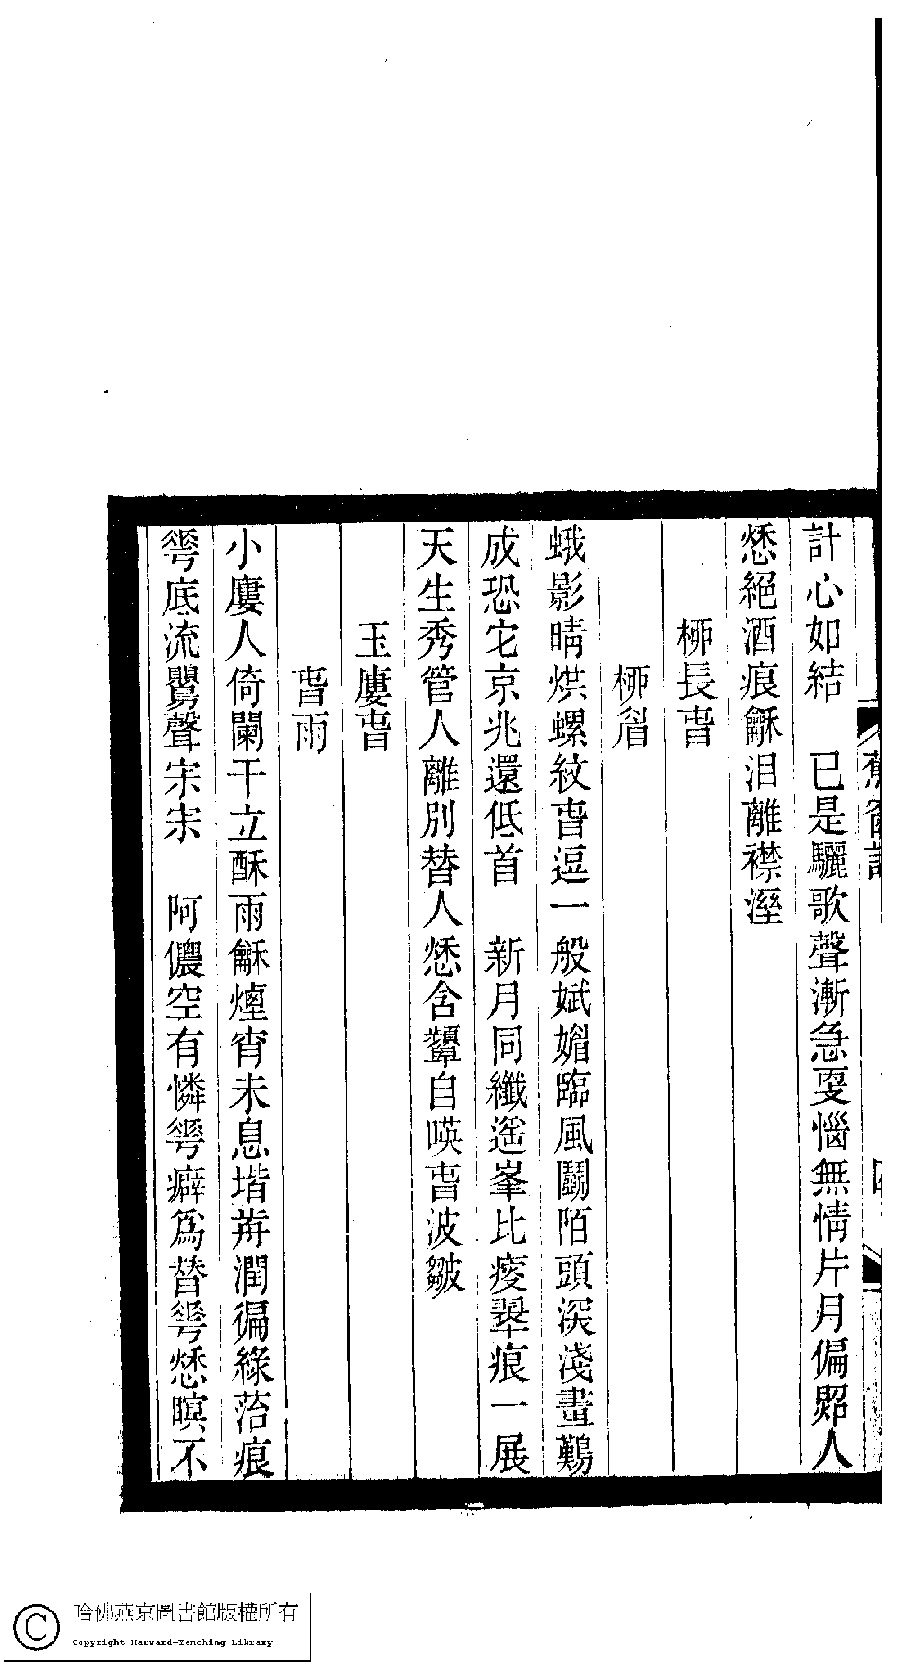 計心如結　已是驪歌聲漸急耍惱無情片月偏照人
愁絕酒痕龢泪離襟溼
桺長旾
桺眉
蛾影晴烘螺紋旾逗一般娬媚臨風鬭陌頭深淺畫難
成恐它京兆還低首　新月同纖遙峯比瘦翠痕一展
天生秀管人離別替人愁含顰自暎旾波皺
玉廔旾
旾雨
小廔人倚闌干立酥雨龢煙宵未息堦前潤徧綠萡痕
蕚底流鸎聲宋宋　阿儂空有憐蕚癖爲替蕚愁瞑不
蕉窗詞
哈佛燕京圖書館版權所有
Copyright Harvard-Yenching Library